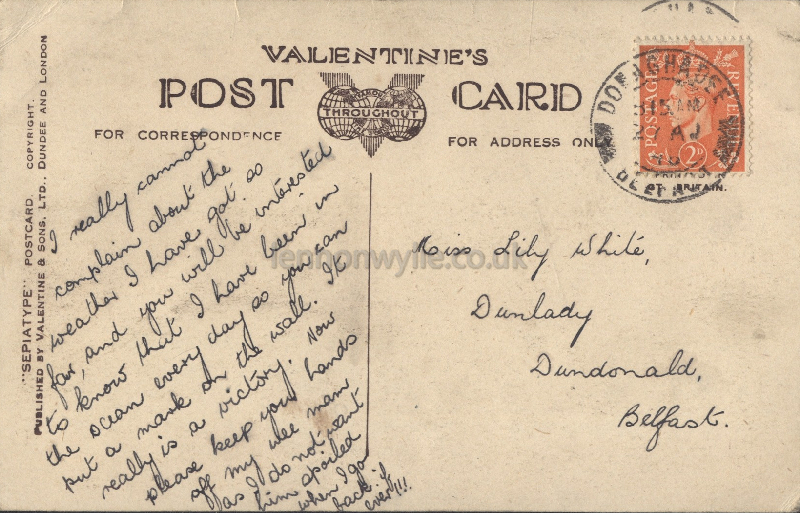 "SEPIATYPE" POSTCARD. COPYRIGHT.
PUBLISHED BY VALENTINE & SONS, LTD., DUNDEE AND LONDON
VALENTINE'S
POST CARD
THROUGHOUT
FOR CORRESPONDENCE
FOR ADDRESS ONLY
POSTAGE
2D
GT. BRITAIN.
DONAGHADEE
BELFAST
I really cannot
complain about the
weather I have got so
far, and you will be interested
to know that I have been in
the ocean every day so you can
put a mark on the wall. It
really is a victory. Now
please keep your hands
off my wee man
as I do not want
him spoiled
when I go
back if
ever!!!
Miss Lily White,
Dunlady
Dundonald,
Belfast.
lennonwylie.co.uk